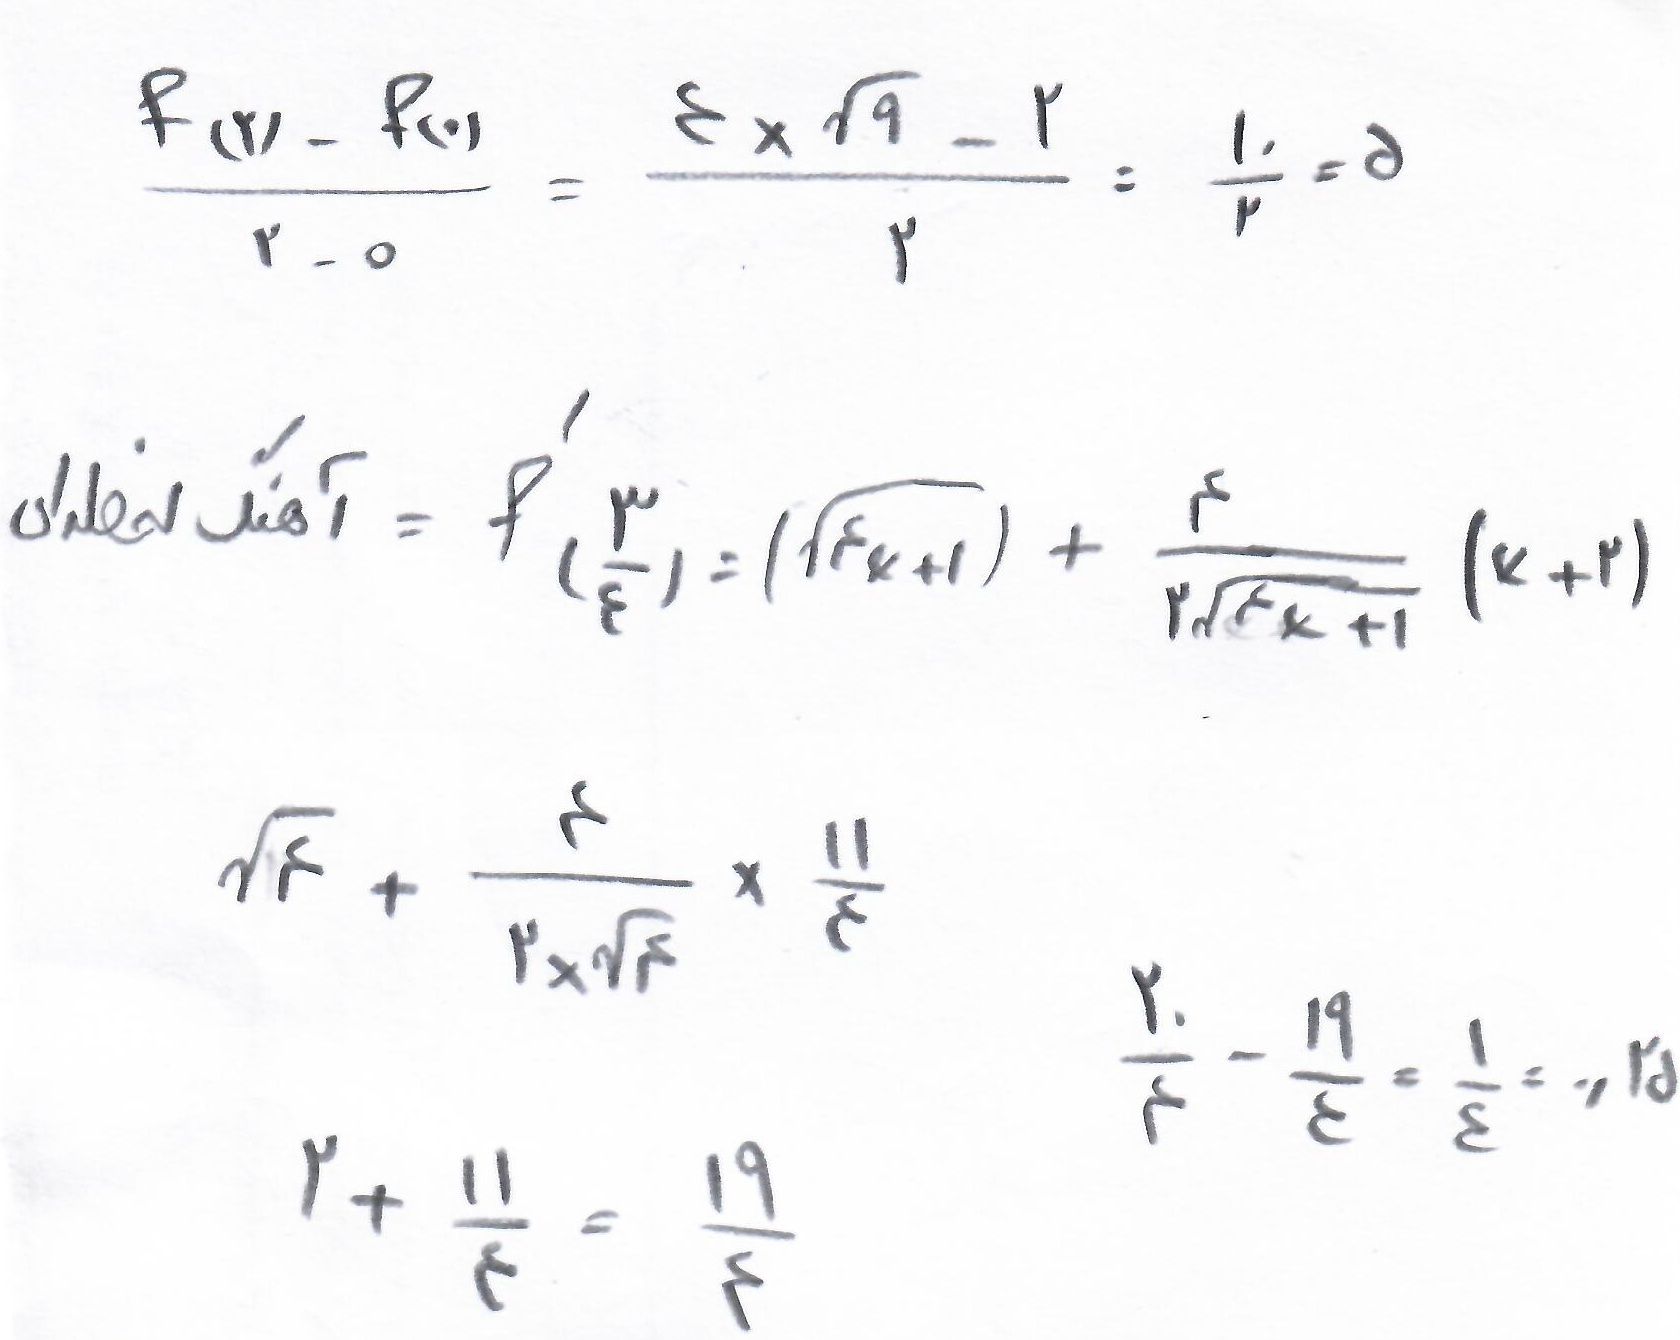 f(۲) - f(۰) / ۲ - ۰ = ۴ × √۹ - ۲ / ۲ = ۱۰ / ۲ = ۵
آهنگ لحظه‌ای = f′(۳/۴) = (√۴x+۱) + ۴ / ۲√۴x+۱ (x+۲)
√۴ + ۴ / ۲×√۴ × ۱۱/۴
۲۰/۴ - ۱۹/۴ = ۱/۴ = ۰,۲۵
۲ + ۱۱/۴ = ۱۹/۴